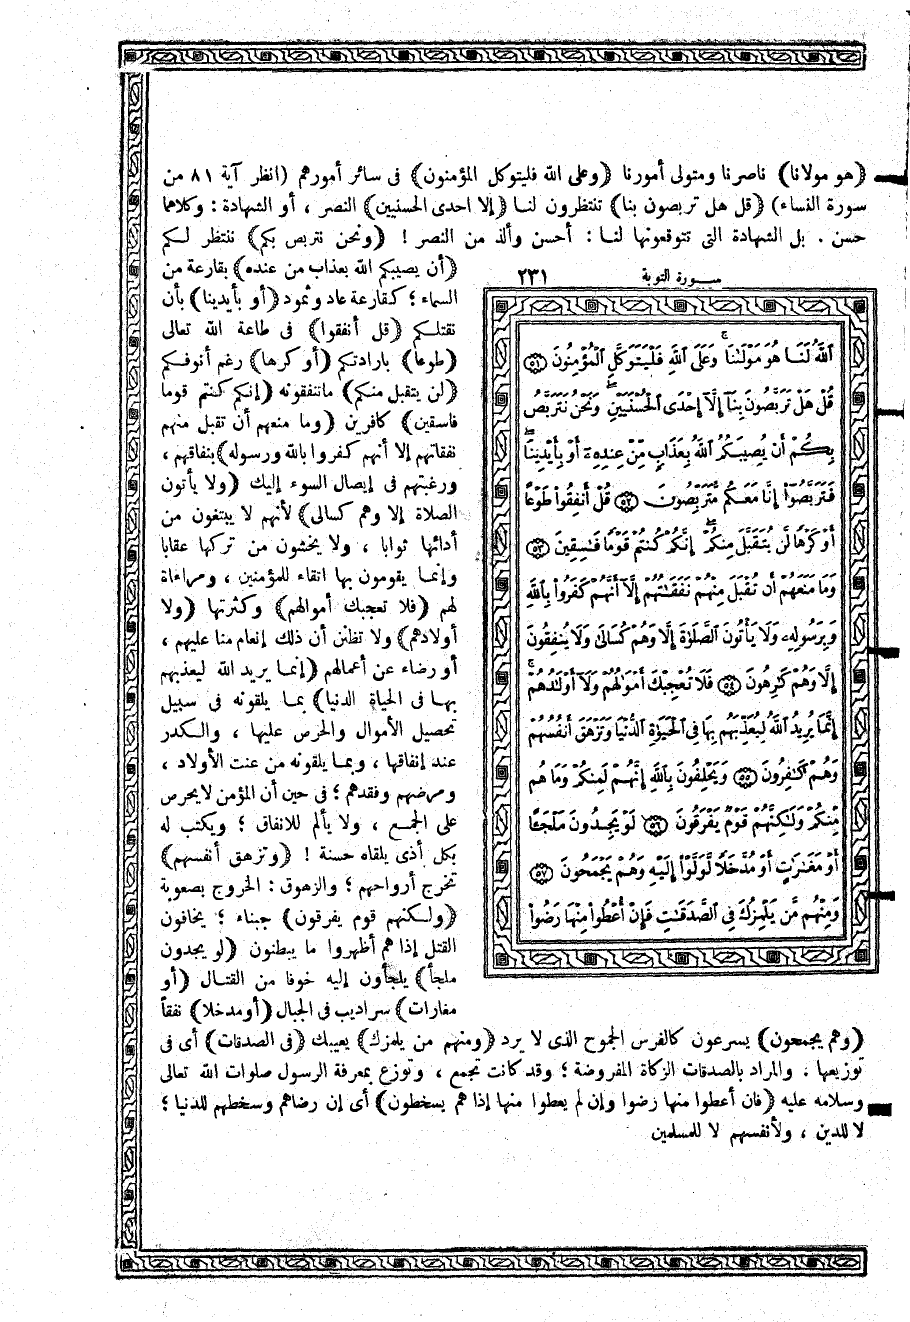 (هو مولانا) ناصرنا ومتولى أمورنا (وعلى الله فليتوكل المؤمنون) فى سائر أمورهم (انظر آية ٨١ من
سورة النساء) (قل هل تربصون بنا) تنتظرون لنا (إلا احدى الحسنيين) النصر ، أو الشهادة : وكلاهما
حسن . بل الشهادة التى تتوقعونها لنا : أحسن وألذ من النصر ! (ونحن نتربص بكم) ننتظر لكم
(أن يصيبكم الله بعذاب من عنده) بقارعة من
السماء ؛ كقارعة عاد وثمود (أو بأيدينا) بأن
نقتلكم (قل أنفقوا) فى طاعة الله تعالى
(طوعا) بارادتكم (أو كرها) رغم أنوفكم
(لن يتقبل منكم) ماتنفقونه (إنكم كنتم قوما
فاسقين) كافرين (وما منعهم أن تقبل منهم
نفقاتهم إلا أنهم كفروا بالله ورسوله) بنفاقهم ،
ورغبتهم فى إيصال السوء إليك (ولا يأتون
الصلاة إلا وهم كسالى) لأنهم لا يبتغون من
أدائها ثوابا ، ولا يخشون من تركها عقابا
وإنما يقومون بها اتقاء للمؤمنين ، ومراءاة
لهم (فلا تعجبك أموالهم) وكثرتها (ولا
أولادهم) ولا تظنن أن ذلك إنعام منا عليهم ،
أو رضاء عن أعمالهم (إنما يريد الله ليعذبهم
بها فى الحياة الدنيا) بما يلقونه فى سبيل
تحصيل الأموال والحرص عليها ، والكدر
عند إنفاقها ، وبما يلقونه من عنت الأولاد ،
ومرضهم وفقدهم ؛ فى حين أن المؤمن لايحرص
على الجمع ، ولا يألم للانفاق ؛ ويكتب له
بكل أذى يلقاه حسنة ! (وتزهق أنفسهم)
تخرج أرواحهم ؛ والزهوق : الخروج بصعوبة
(ولكنهم قوم يفرقون) جبناء ؛ يخافون
القتل إذا هم أظهروا ما يبطنون (لو يجدون
ملجأ) يلجأون إليه خوفا من القتال (أو
مغارات) سراديب فى الجبال (أو مدخلا) نفقاً
سورة التوبة ٢٣١
ٱللَّهُ لَنَا هُوَ مَوْلَىٰنَا ۚ وَعَلَى ٱللَّهِ فَلْيَتَوَكَّلِ ٱلْمُؤْمِنُونَ ٥١
قُلْ هَلْ تَرَبَّصُونَ بِنَآ إِلَّآ إِحْدَى ٱلْحُسْنَيَيْنِ ۖ وَنَحْنُ نَتَرَبَّصُ
بِكُمْ أَن يُصِيبَكُمُ ٱللَّهُ بِعَذَابٍ مِّنْ عِندِهِۦٓ أَوْ بِأَيْدِينَا ۖ
فَتَرَبَّصُوٓا۟ إِنَّا مَعَكُم مُّتَرَبِّصُونَ ٥٢ قُلْ أَنفِقُوا۟ طَوْعًا
أَوْ كَرْهًا لَّن يُتَقَبَّلَ مِنكُمْ ۖ إِنَّكُمْ كُنتُمْ قَوْمًا فَـٰسِقِينَ ٥٣
وَمَا مَنَعَهُمْ أَن تُقْبَلَ مِنْهُمْ نَفَقَـٰتُهُمْ إِلَّآ أَنَّهُمْ كَفَرُوا۟ بِٱللَّهِ
وَبِرَسُولِهِۦ وَلَا يَأْتُونَ ٱلصَّلَوٰةَ إِلَّا وَهُمْ كُسَالَىٰ وَلَا يُنفِقُونَ
إِلَّا وَهُمْ كَـٰرِهُونَ ٥٤ فَلَا تُعْجِبْكَ أَمْوَٰلُهُمْ وَلَآ أَوْلَـٰدُهُمْ ۚ
إِنَّمَا يُرِيدُ ٱللَّهُ لِيُعَذِّبَهُم بِهَا فِى ٱلْحَيَوٰةِ ٱلدُّنْيَا وَتَزْهَقَ أَنفُسُهُمْ
وَهُمْ كَـٰفِرُونَ ٥٥ وَيَحْلِفُونَ بِٱللَّهِ إِنَّهُمْ لَمِنكُمْ وَمَا هُم
مِّنكُمْ وَلَـٰكِنَّهُمْ قَوْمٌ يَفْرَقُونَ ٥٦ لَوْ يَجِدُونَ مَلْجَـًٔا
أَوْ مَغَـٰرَٰتٍ أَوْ مُدَّخَلًا لَّوَلَّوْا۟ إِلَيْهِ وَهُمْ يَجْمَحُونَ ٥٧
وَمِنْهُم مَّن يَلْمِزُكَ فِى ٱلصَّدَقَـٰتِ فَإِنْ أُعْطُوا۟ مِنْهَا رَضُوا۟
(وهم يجمحون) يسرعون كالفرس الجموح الذى لا يرد (ومنهم من يلمزك) يعيبك (فى الصدقات) أى فى
توزيعها . والمراد بالصدقات الزكاة المفروضة ؛ وقد كانت تجمع ، وتوزع بمعرفة الرسول صلوات الله تعالى
وسلامه عليه (فان أعطوا منها رضوا وإن لم يعطوا منها إذا هم يسخطون) أى إن رضاهم وسخطهم للدنيا ؛
لا للدين ، ولأنفسهم لا للمسلمين